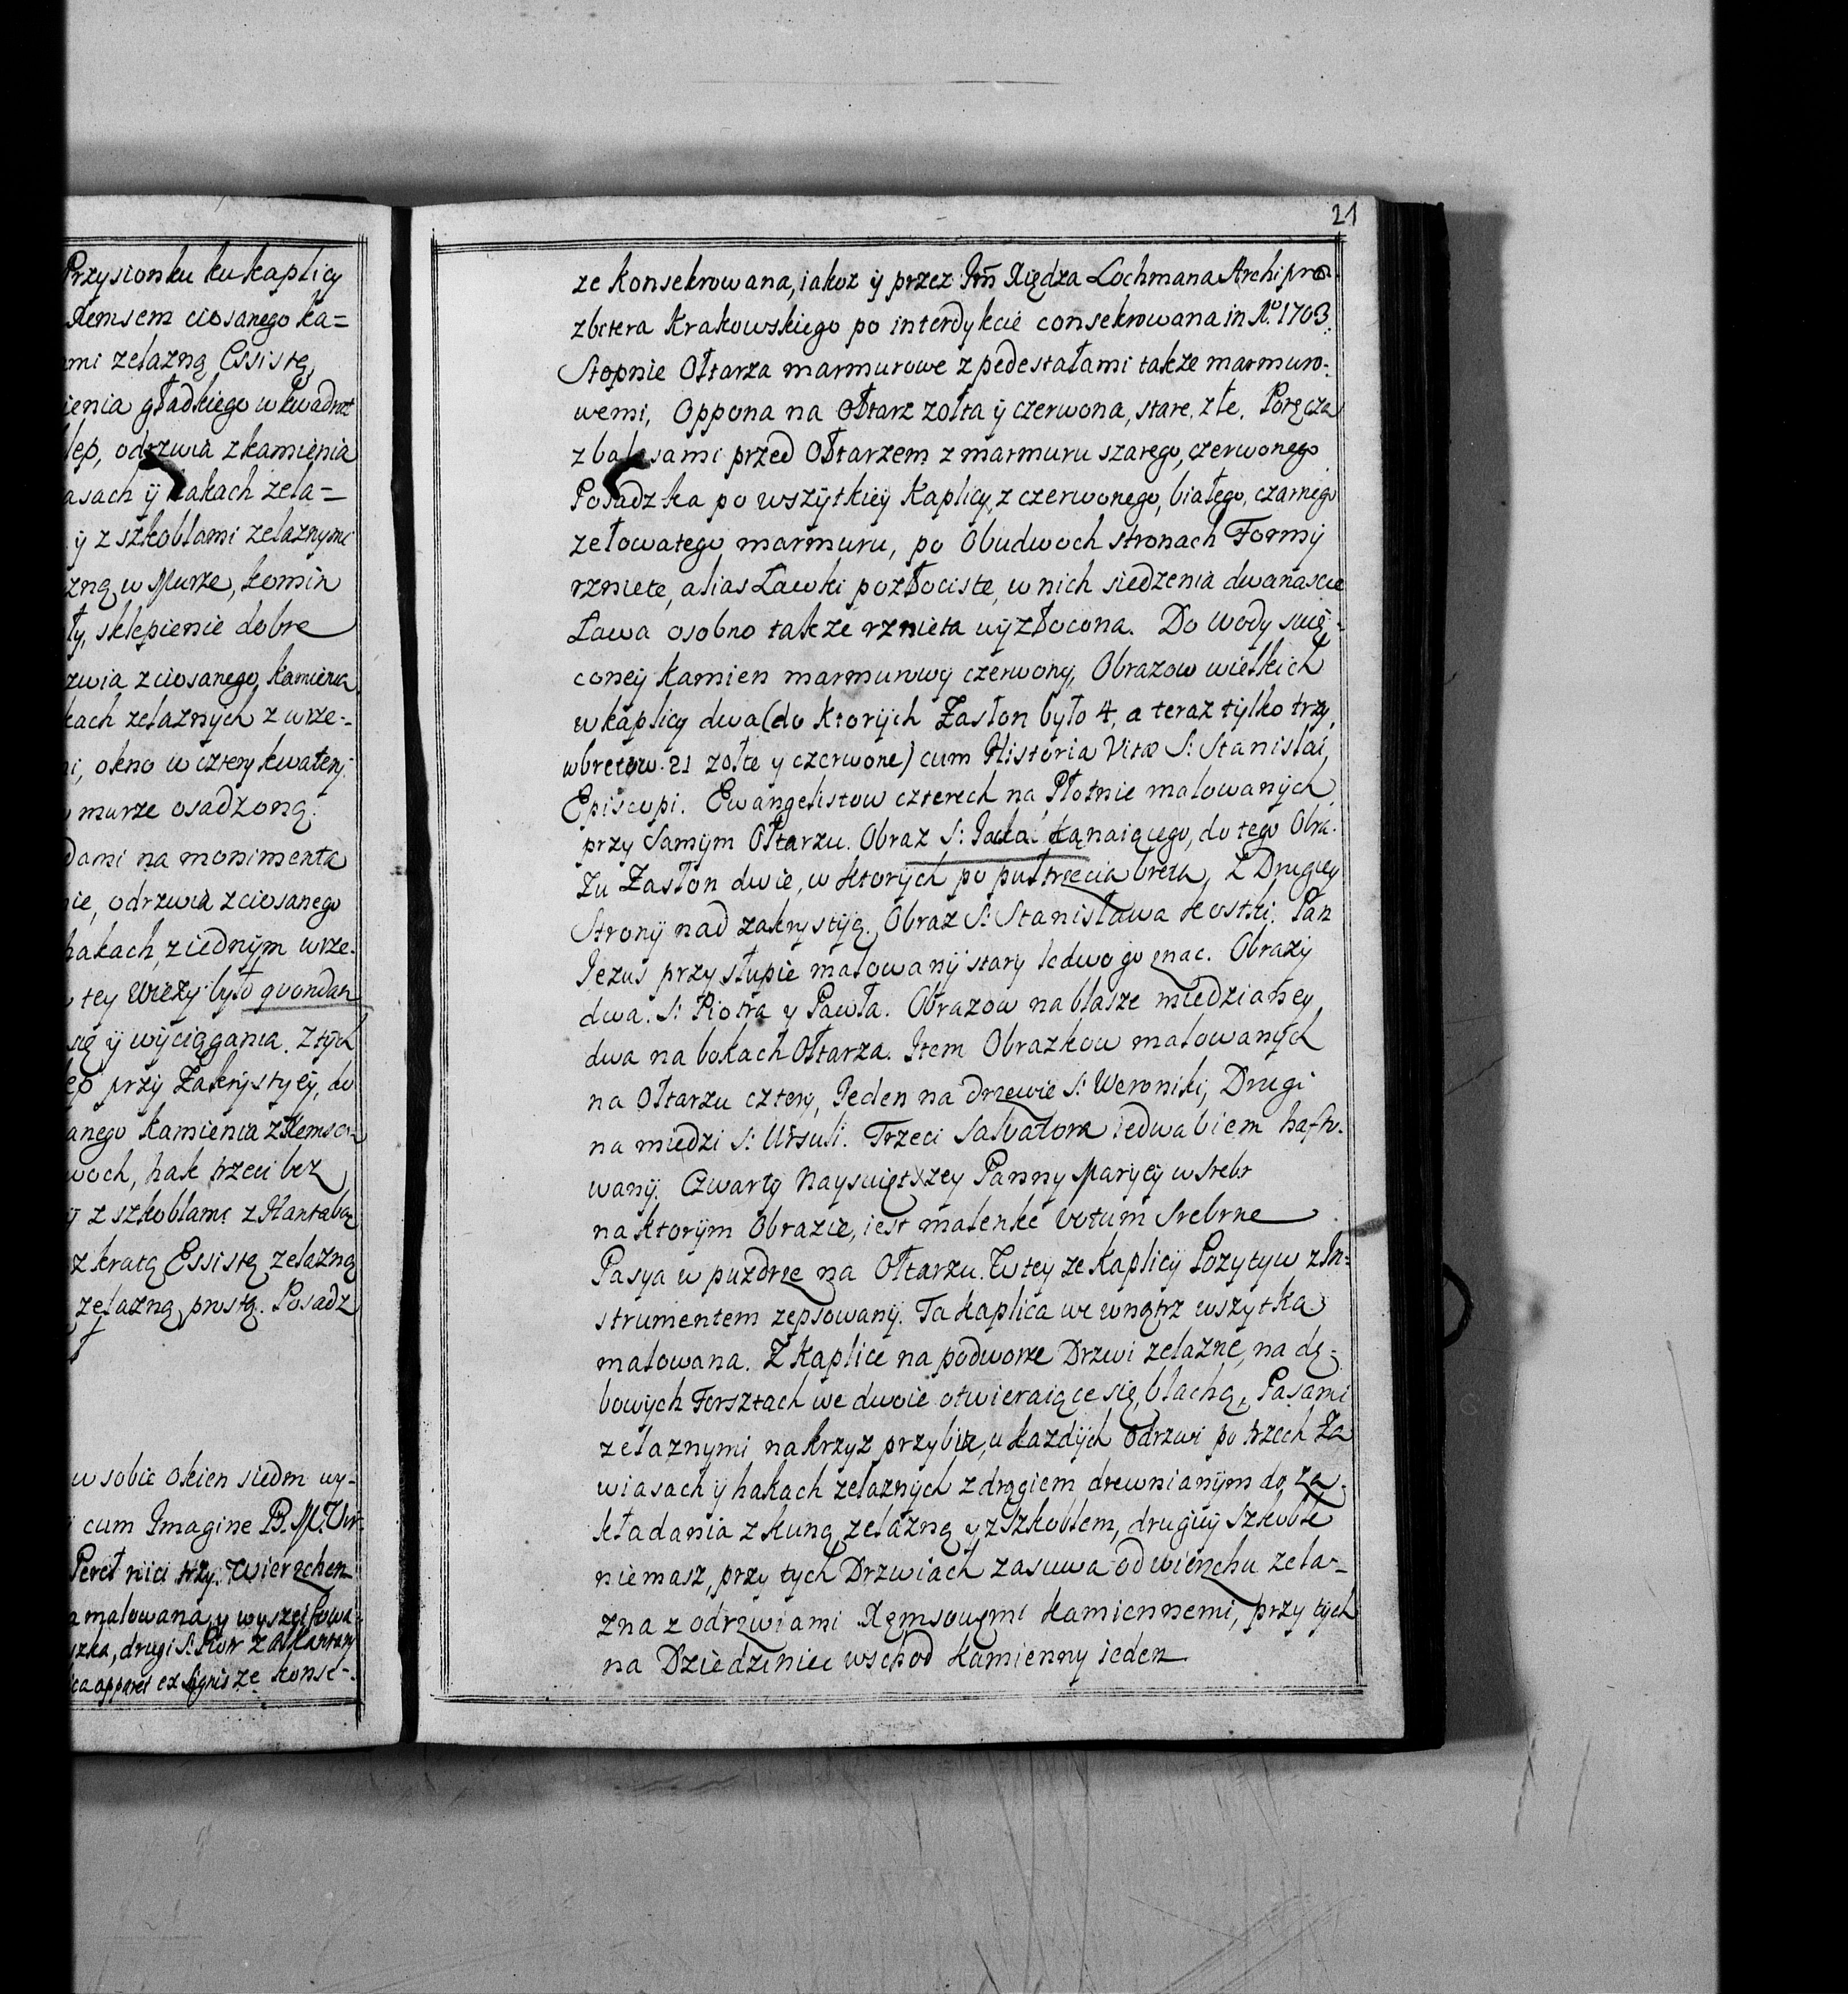 Przysionku ku kaplicy
Xemsem ciosanego ka=
mi zelazną Essistą,
ienia gładkiego w kwadrat
lep, odrzwia z kamienia
asach ÿ hakach zela=
ÿ z szkoblami zelaznymi
zną w Murze, komin
ły, sklepienie dobre
zwia z ciosanego kamienia
kach zelaznÿch z wrze-
i, okno w cztery kwatery
murze osadzoną.
dami na monimenta
ie, odrzwia z ciosanego
hakach, z iednÿm wrze-
tey Wieży było quondam
się ÿ wÿciągania. Z tÿch
ep przÿ Zakrÿstyeÿ, do
anego kamienia z Xemsa-
woch, hak trzeci bez
ÿ z szkoblami z Hantabą
z kratą Essistą zelazną
zelazną prostą. Posadz
w sobie okien siedm wy-
cum Imagine B. M. Vir-
Pereł nici trzy. Zwierzchen
a malowana, y wyszeifowa-
szka, drugi S: Piotr z Alkantary
ica apparet ex signis ze Konse-
21
ze Konsekrowana, iakoz ÿ przez Jm̃ Xiędza Lochmana Archipre-
zbitera Krakowskiego po interdykcie consekrowana in Aº. 1703.
Stopnie Ołtarza marmurowe z pedestałami takze marmuro-
wemi, Oppona na Ołtarz zołta ÿ czerwona, stare, złe. Poręcza
z balasami przed Ołtarzem z marmuru szarego, czerwonego
Posadzka po wszÿtkiey Kaplicy, z czerwonego, białego, czarnego
zełowatego marmuru, po Obudwoch stronach Formÿ
rzniete, alias Ławki pozłociste, w nich siedzenia dwanascie
Ława osobno takze rznieta wÿzłocona. Do wody swię-
coney Kamien marmurowy czerwony, Obrazow wielkich
w kaplicy dwa (do ktorÿch Zasłon było 4, a teraz tylko trzy,
w bretow 21 zołte y czerwone) cum Historia Vitæ S: Stanislai
Episcopi. Ewangelistow czterech na Płotnie malowanÿch
przy Samÿm Ołtarzu. Obraz S: Jacka Kąnaiącego, do tego Obra-
zu Zasłon dwie, w ktorÿch po pułtrzecia breta, Z Drugiey
Stronÿ nad zakrystÿą. Obraz S: Stanisława Kostki. Pan
Jezus przy słupie malowanÿ stary ledwo go znac. Obrazÿ
dwa. S: Piotra y Pawła. Obrazow na blasze miedzianey
dwa na bokach Ołtarza. Item Obrazkow malowanÿch
na Ołtarzu cztery, Jeden na drzewie S: Weroniki, Drugi
na miedzi S: Ursuli. Trzeci Salvatora iedwabiem hafto-
wanÿ. Czwarty Nayswiętszey Panny Maryey w srebr
na ktorÿm Obrazie, iest malenke Votum Srebrne
Pasya w puzdrze na Ołtarzu. W tey ze Kaplicÿ Pozytyw z In-
strumentem zepsowanÿ. Ta kaplica we wnątrz wszytka
malowana. Z kaplice na podworze Drzwi zelazne, na dę-
bowÿch Forsztach we dwoie otwieraiące się, blachą, Pasami
zelaznymi na krzyz przybite, u kazdÿch Odrzwi po trzech Za
wiasach ÿ hakach zelaznÿch z drągiem drewnianÿm do za-
kładania z kuną zelazną y z szkoblem, drugiÿ szkoble
niemasz, przy tych Drzwiach zasuwa od wierzchu zela-
zna z odrzwiami Xęmsowemi kamiennemi, przy tÿch
na Dziedziniec wschod kamienny ieden